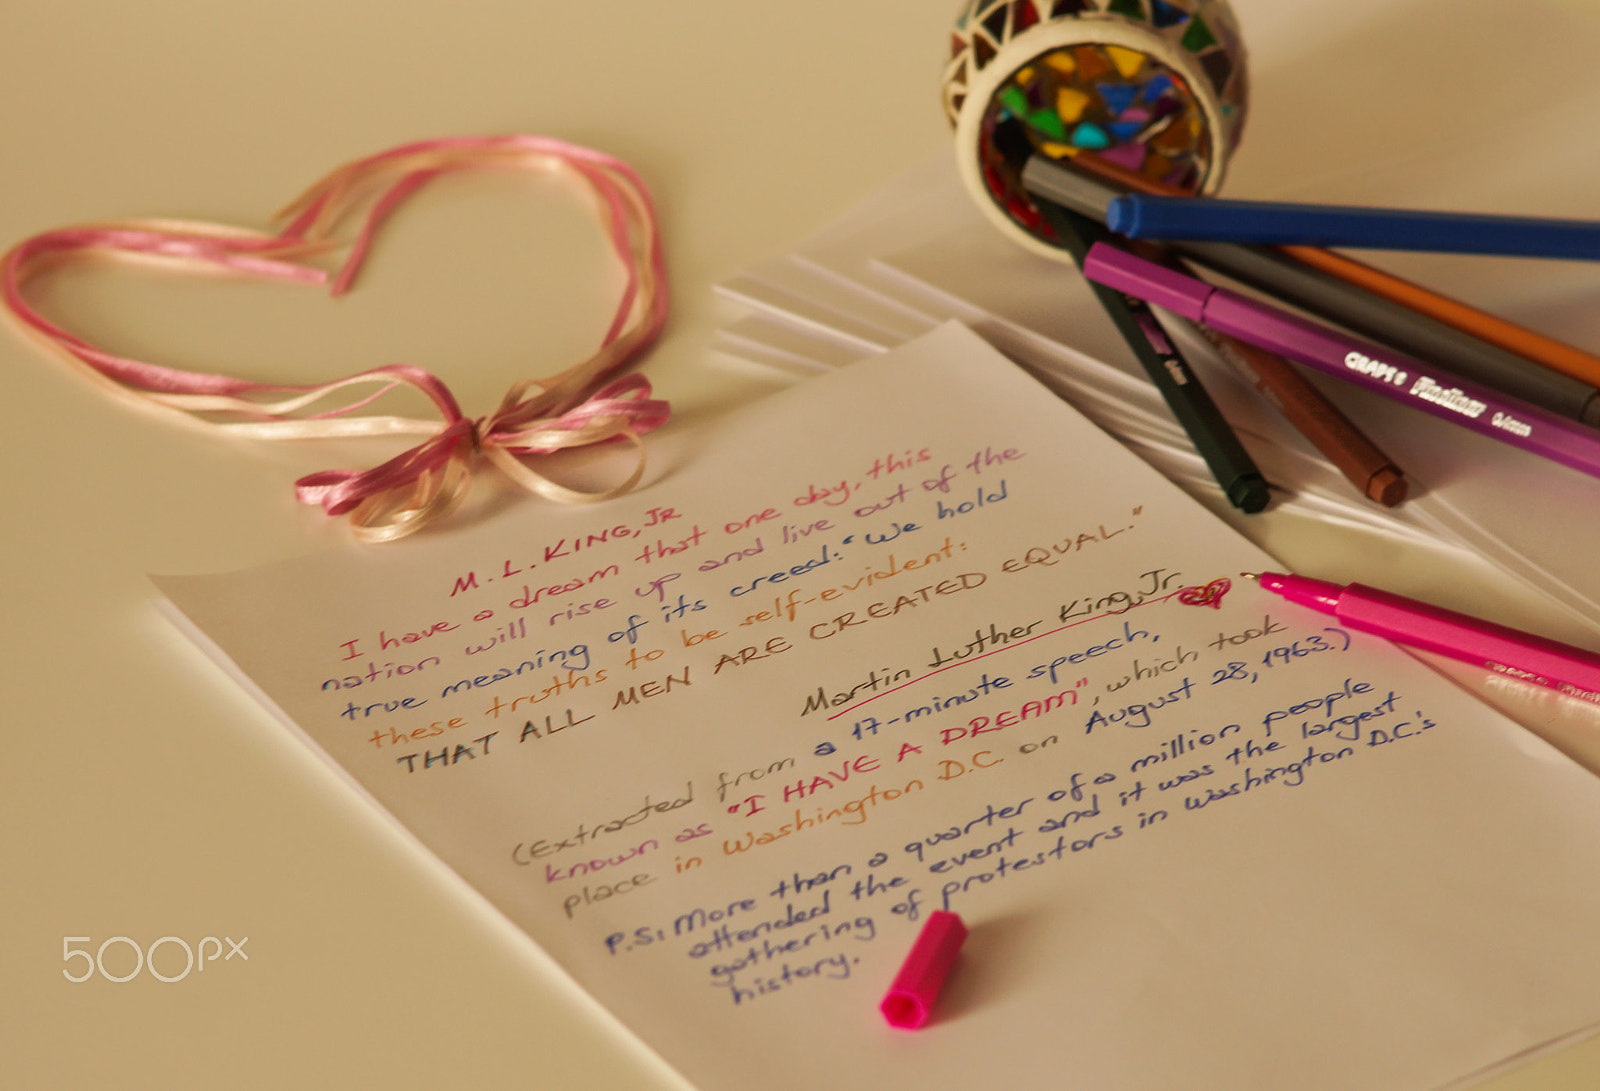 M. L. KING, JR
I have a dream that one day, this
nation will rise up and live out of the
true meaning of its creed: "We hold
these truths to be self-evident:
THAT ALL MEN ARE CREATED EQUAL."
Martin Luther King, Jr.
(Extracted from a 17-minute speech,
known as "I HAVE A DREAM", which took
place in Washington D.C. on August 28, 1963.)
P.S: More than a quarter of a million people
attended the event and it was the largest
gathering of protestors in Washington D.C.'s
history.
GRAPS'S Fineliner 0.4mm
500px